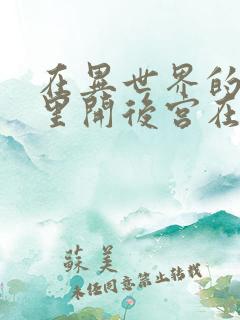 在異世界的
里開後宮在
蘇美
未經同意禁止轉載